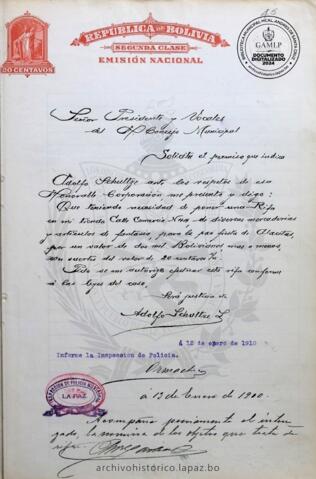 15
REPUBLICA DE BOLIVIA
SEGUNDA CLASE
EMISIÓN NACIONAL
20 CENTAVOS
GAMLP
DOCUMENTO
DIGITALIZADO
2024
Señor Presidente y Vocales
del H. Concejo Municipal
Solicita el permiso que indica
Adolfo Schultze ante los respetos de esa
Honorable Corporación me presento y digo:
Que teniendo necesidad de poner una Rifa
en mi tienda Calle Comercio de diversas mercaderías
y artículos de fantasía, para la fiesta de Alacitas,
por un valor de dos mil Bolivianos mas o menos,
con suertes del valor de 20 centavos
Pido se me autorize efectuar esta rifa conforme
á las leyes del caso,
Será justicia
Adolfo Schultze
á 12 de enero de 1910
Informe la Inspección de Policía.
INSPECCION DE POLICIA MUNICIPAL
LA PAZ
á 13 de Enero de 1910.
Acompañe previamente el
la nómina de los objetos que trata de
rifar
archivohistórico.lapaz.bo